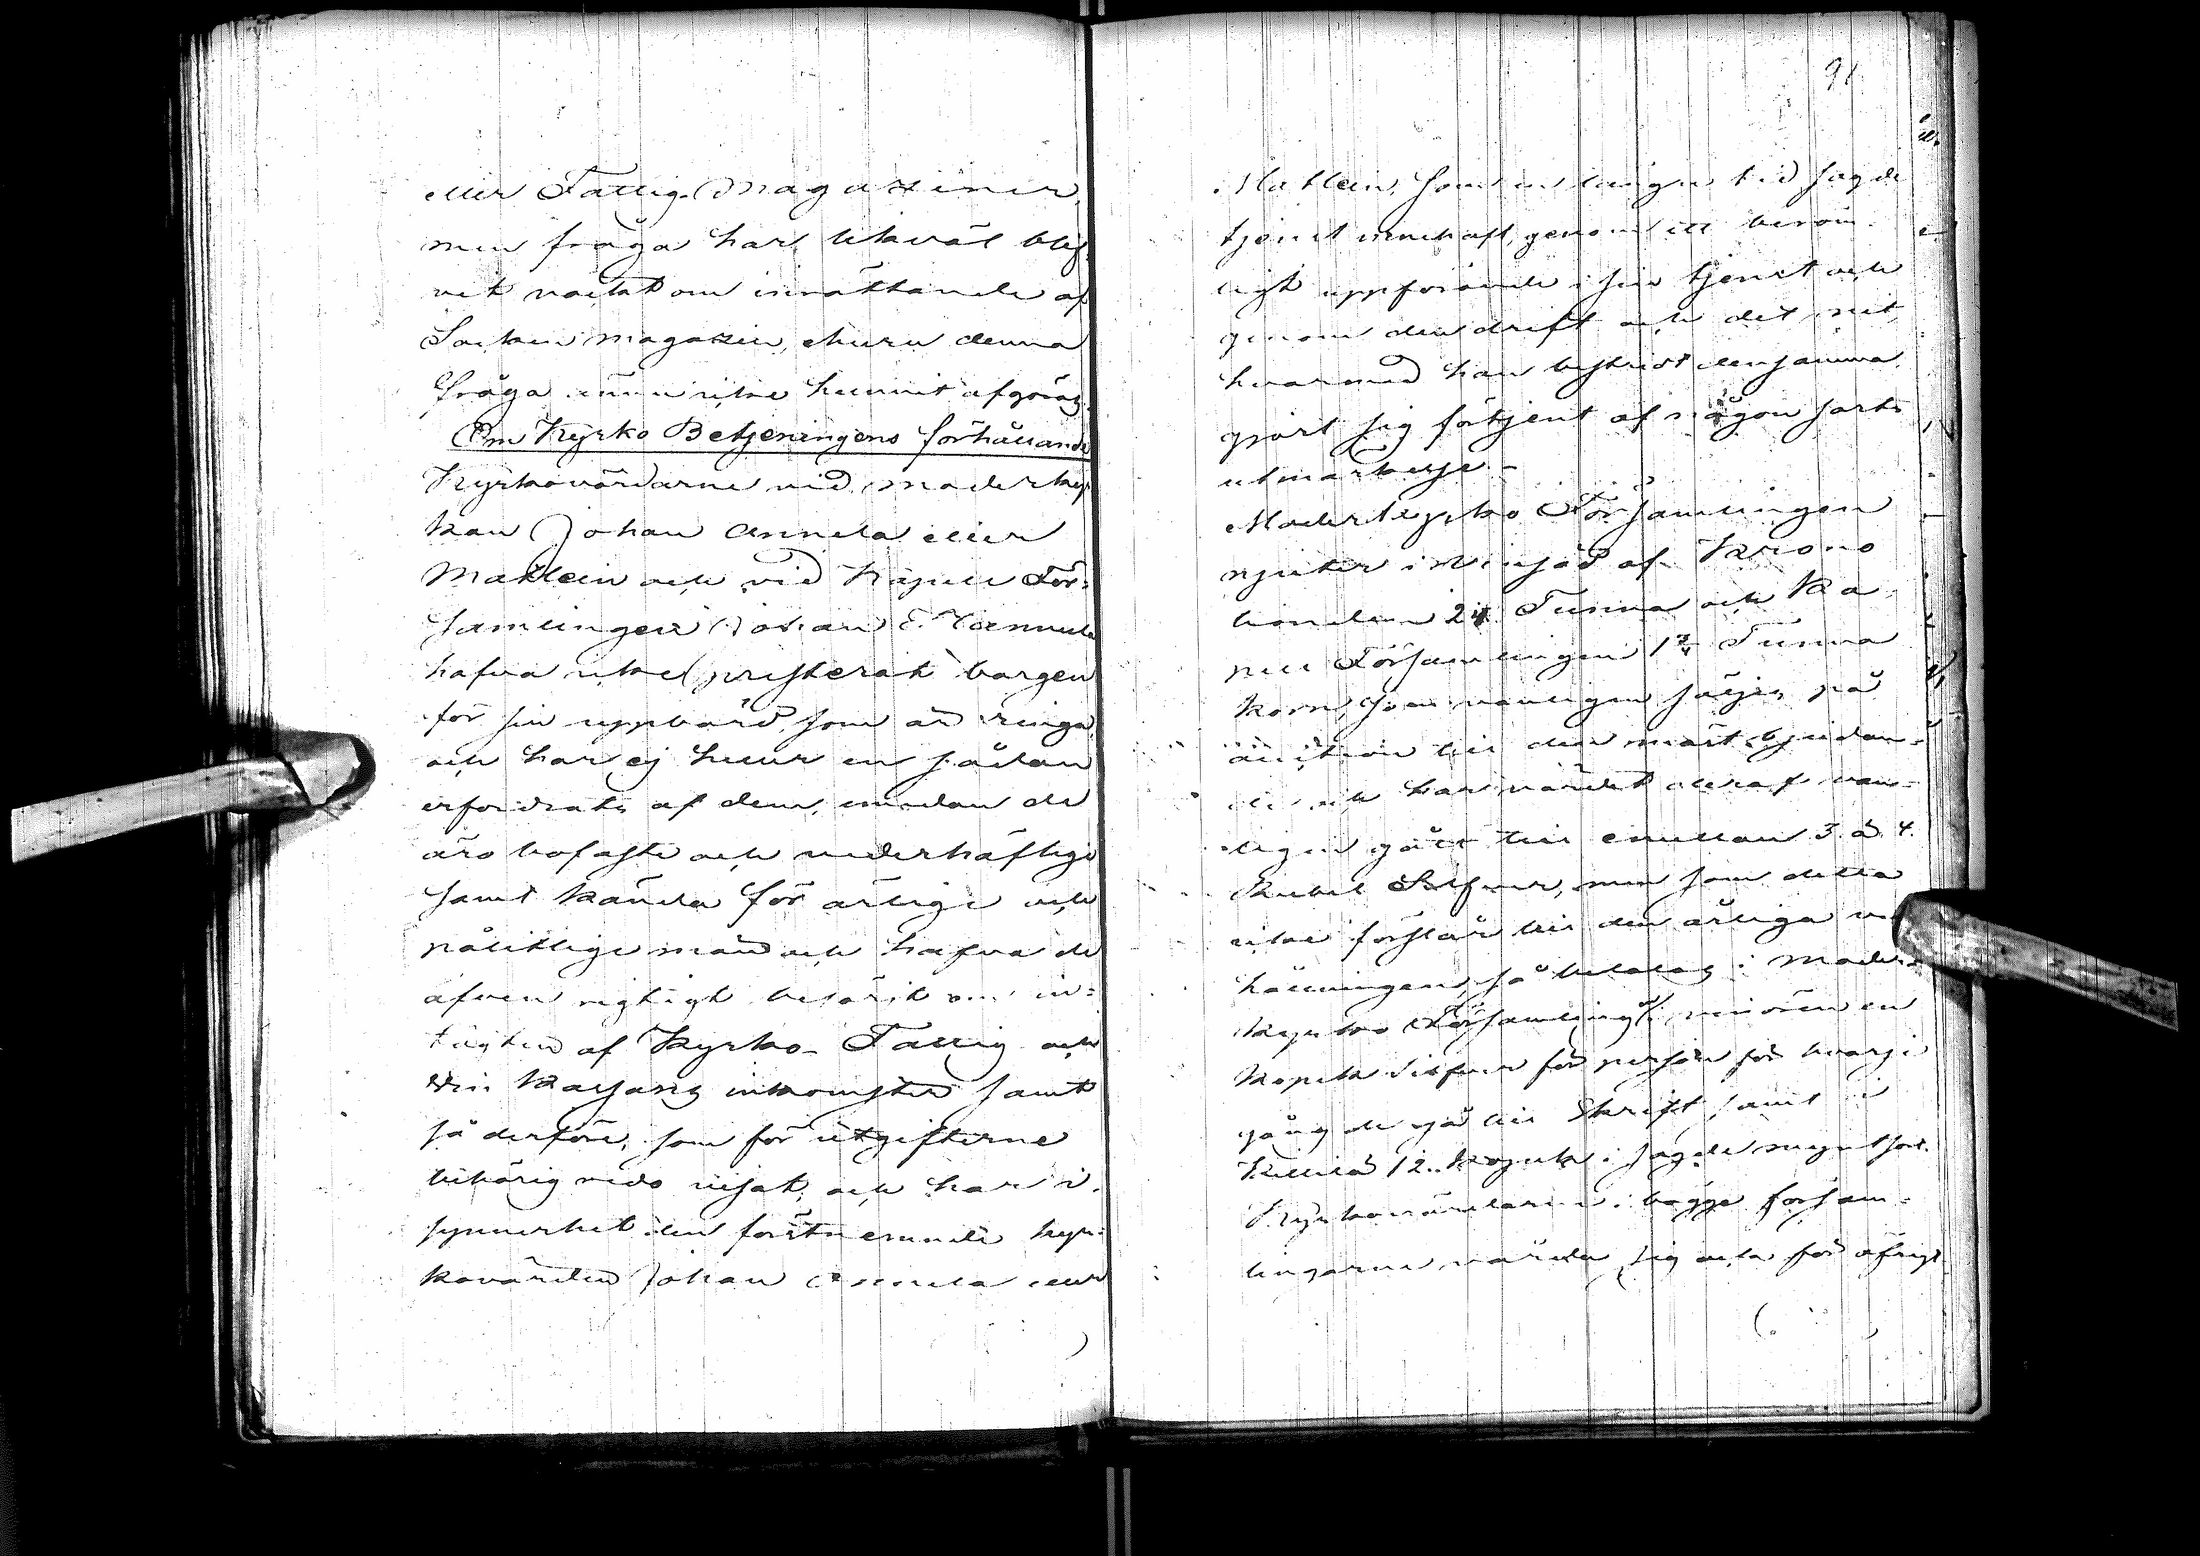 eller Fattig-Magaziner,
men fråga har likväl blif-
vit väckt om inrättande af
Socken magazin, ehuru denna
fråga ännu icke hunnit afgöras.
Om Kyrko Betjeningens förhållande
Kyrkovärdarne vid moderkyr
kan Johan Annela eller
Mattlein och vid Kapell För-
samlingen Johan E.
hafva icke presterat borgen
för sin uppbörd, som är ringa,
och har ej heller en sådan
erfordrats af dem, emedan de
äro bofaste och vederhäftige
samt kände för ärlige och
pålitlige män och hafva de
äfven rigtigt besörjt om in-
tägten af Kyrko- Fattig och
kassans inkomster samt
så derföre, som för utgifterne
behörig redo visat, och har i
synnerhet den förstnemnde kyr-
kovärden Johan Annela eller
91
Mattlein, som en längre tid sagde
tjenst innehaft, genom ett beröm-
ligt uppförande i sin tjenst och
genom den drift och det nit,
hvarmed han bestridt densamma,
gjort sig förtjent af någon sorts
utmärkelse.-
Moderkyrko Församlingen
njuter i vinsäd af Krono
tionden 2 Tunna och Ka
pell Församlingen 1 Tunna
Korn, som vanligen säljes på
auktion till den mäst bjudan-
de och har värdet deraf van-
ligen gått till emellan 3 à 4
Rubel Silfver, men som detta
icke förslår till den årliga
hållningen, så betalas i Moder-
kyrko Församlingen en
kopek Silfver för person för hvarje
gång de gå till Skrift samt i
12 Kopek i sagde myntsort.
Kyrkovärdarne i bägge försam-
lingarne vårda sig och för öfrigt